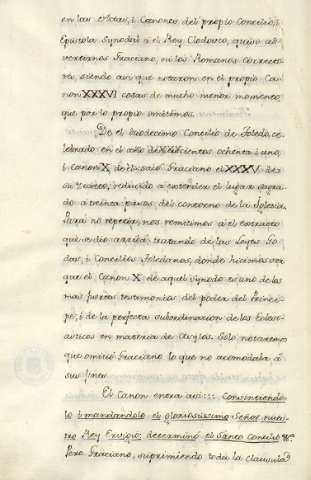 en las Notas, i Canones del propio Concilio, i
Epistola Synodal à el Rey Clodoveo, quiso ad-
vertirnos Graciano, ni los Romanos Correcto-
res, siendo asi que notaron en el propio Ca-
non XXXVI cosas de mucho menor momento,
que por lo propio omitimos.
De el duodecimo Concilio de Toledo, ce-
lebrado en el año de seiscientos ochenta i uno,
i Canon X de èl, sacò Graciano el XXXV
reducido à extender el lugar sagra-
do à treinta pasos del convento de la Iglesia.
Para no repetir, nos remitimos à el extracto
que se dio arriba tratando de las Leyes Go-
das, i Concilios Toledanos, donde hicimos ver
que el Canon X de aquel Synodo es uno de los
mas fuertes testimonios del poder del Princi-
pe, i de la perfecta subordinacion de los Ecles-
iasticos en materia de Asylos. Solo notaremos
que omitiò Graciano lo que no acomodaba à
sus fines.
El Canon entra asi::: consintiendo-
lo i mandandolo el gloriosissimo Señor nues-
tro Rey Ervigio: determinò el Santo Concilio &c.
Pero Graciano, suprimiendo toda la clausula